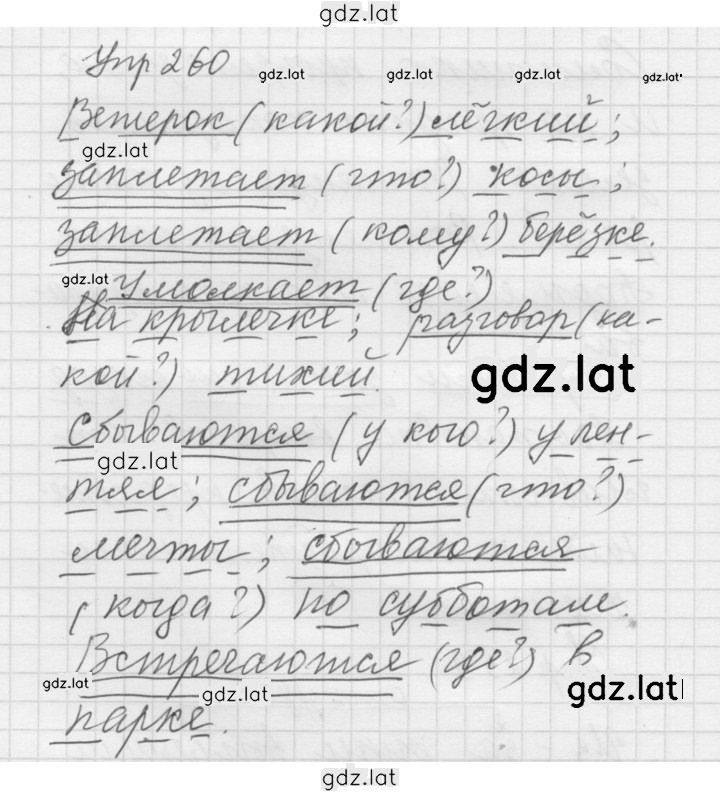 gdz.lat
Упр 260
gdz.lat gdz.lat gdz.lat gdz.lat
Ветерок (какой?) лёгкий;
gdz.lat
заплетает (что?) косы;
заплетает (кому?) берёзке.
gdz.lat Умолкает (где?)
На крылечке; разговор (ка-
кой?) тихий.
gdz.lat
Сбываются (у кого?) у лен-
gdz.lat
тяя; сбываются (что?)
мечты; сбываются
(когда?) по субботам.
Встречаются (где?) в
gdz.lat gdz.lat gdz.lat
парке.
gdz.lat